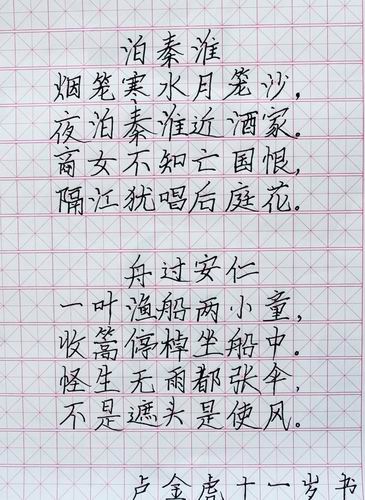 泊秦淮
烟笼寒水月笼沙，
夜泊秦淮近酒家。
商女不知亡国恨，
隔江犹唱后庭花。
舟过安仁
一叶渔船两小童，
收篙停棹坐船中。
怪生无雨都张伞，
不是遮头是使风。
卢金虎十一岁书